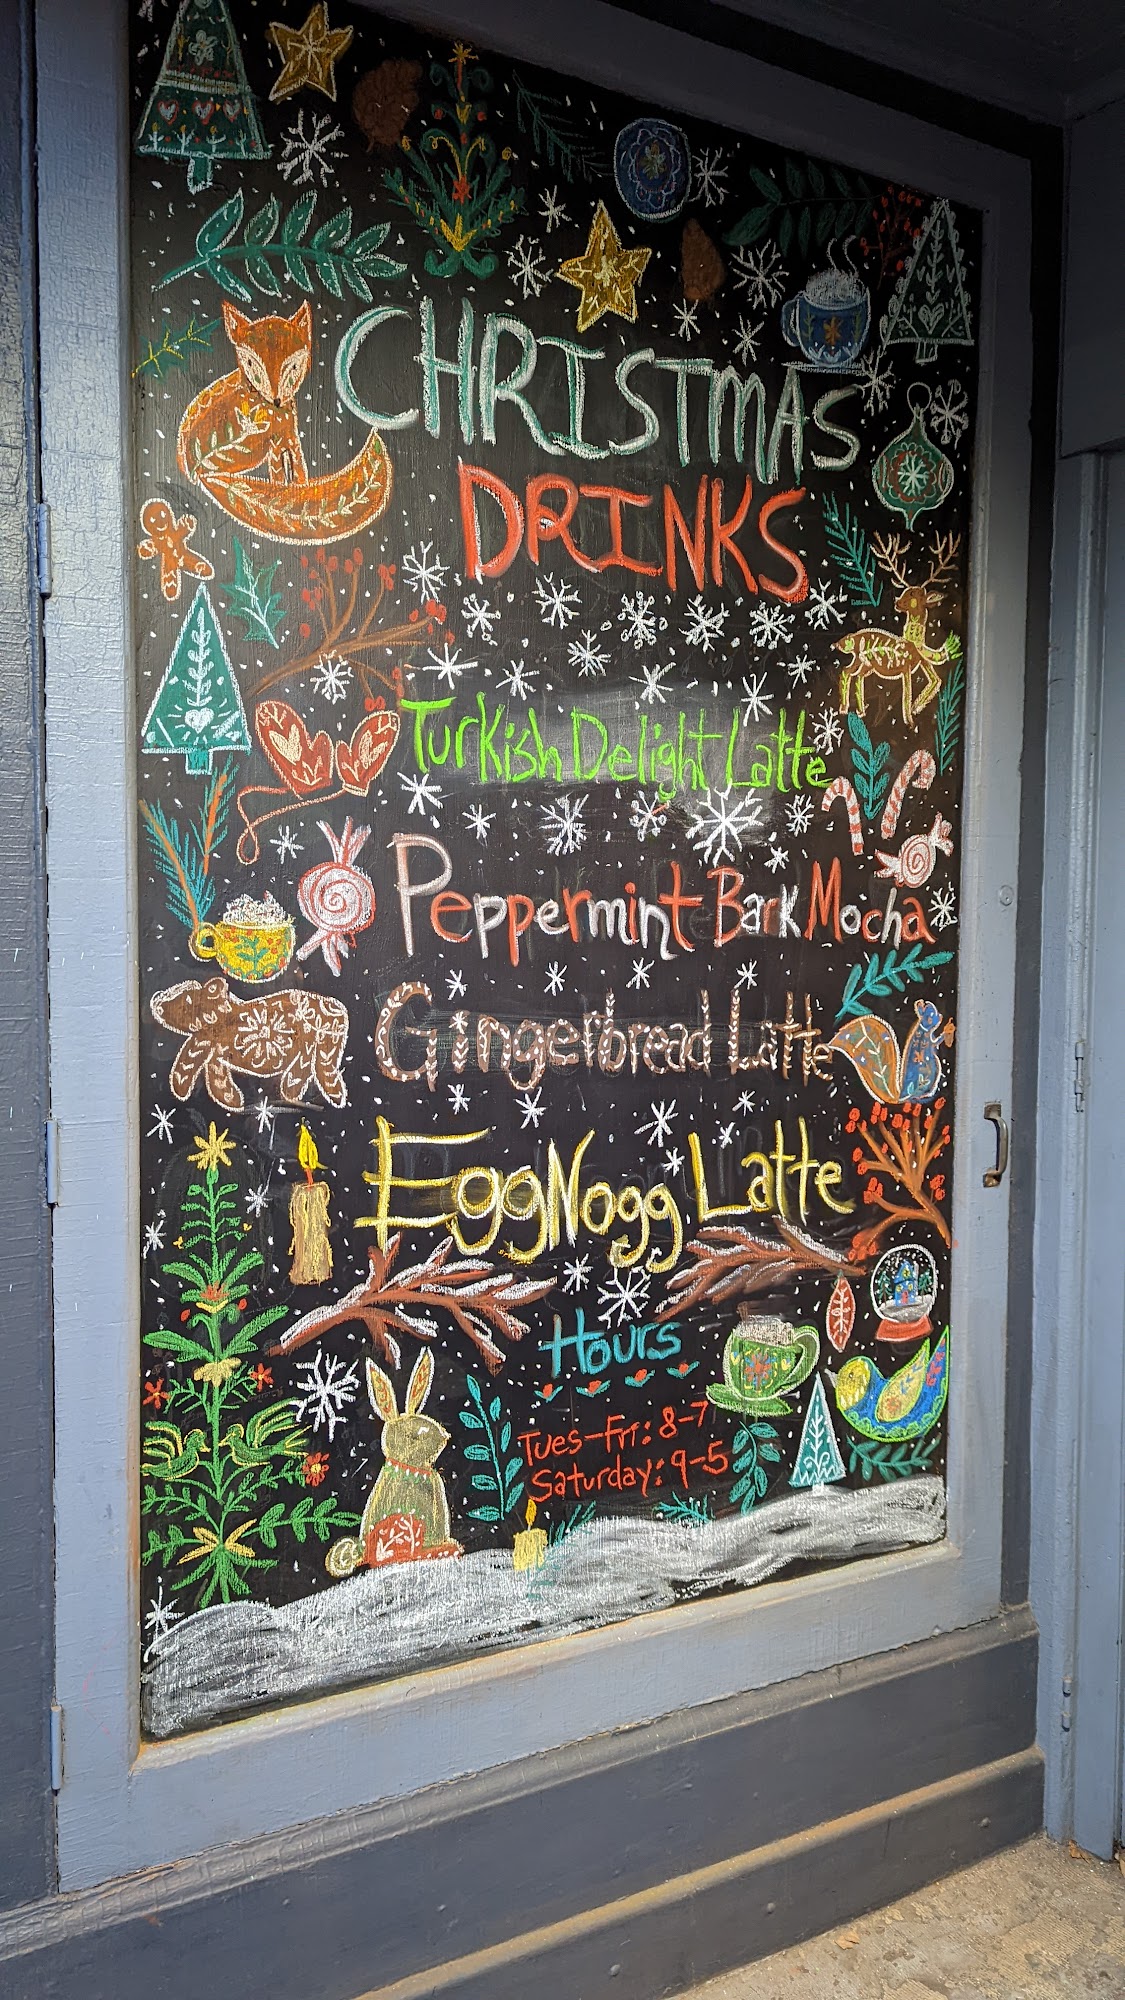 CHRISTMAS
DRINKS
Turkish Delight Latte
Peppermint Bark Mocha
Gingerbread Latte
EggNogg Latte
Hours
Tues-Fri: 8-7
Saturday: 9-5